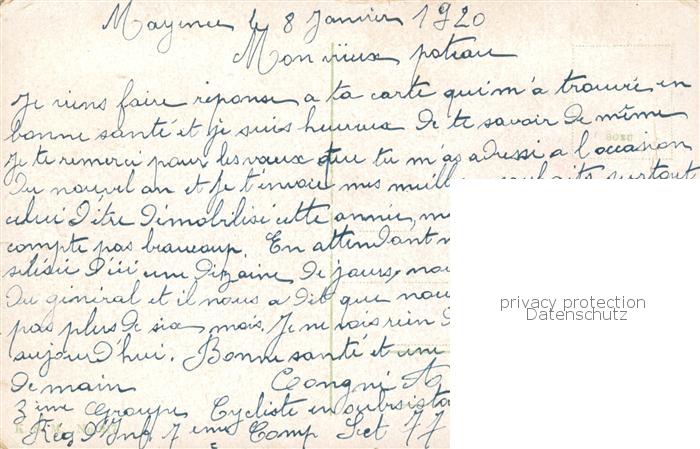 Mayence le 8 Janvier 1920
Mon vieux poteau
Je viens faire réponse a ta carte qui m'a trouvé en
bonne santé et je suis heureux de te savoir de même
Je te remerci pour les vœux que tu m'as adressé a l'occasion
du nouvel an et je t'envoie mes meill souhaits surtout
celui d'être démobilisé cette année, m
compte pas beaucoup. En attendant n
d'ici une dizaine de jours, nou
du général et il nous a dit que nou
pas plus de six mois. Je ne vois rien d
aujourd'hui. Bonne santé et une
de main Congné A
3ème Groupe Cycliste en subsista
Reg d'Inf 7ème Comp Sect 77
privacy protection
Datenschutz